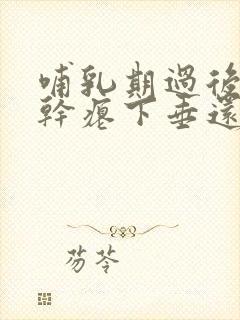 哺乳期過後
幹癟下垂還
芴苓